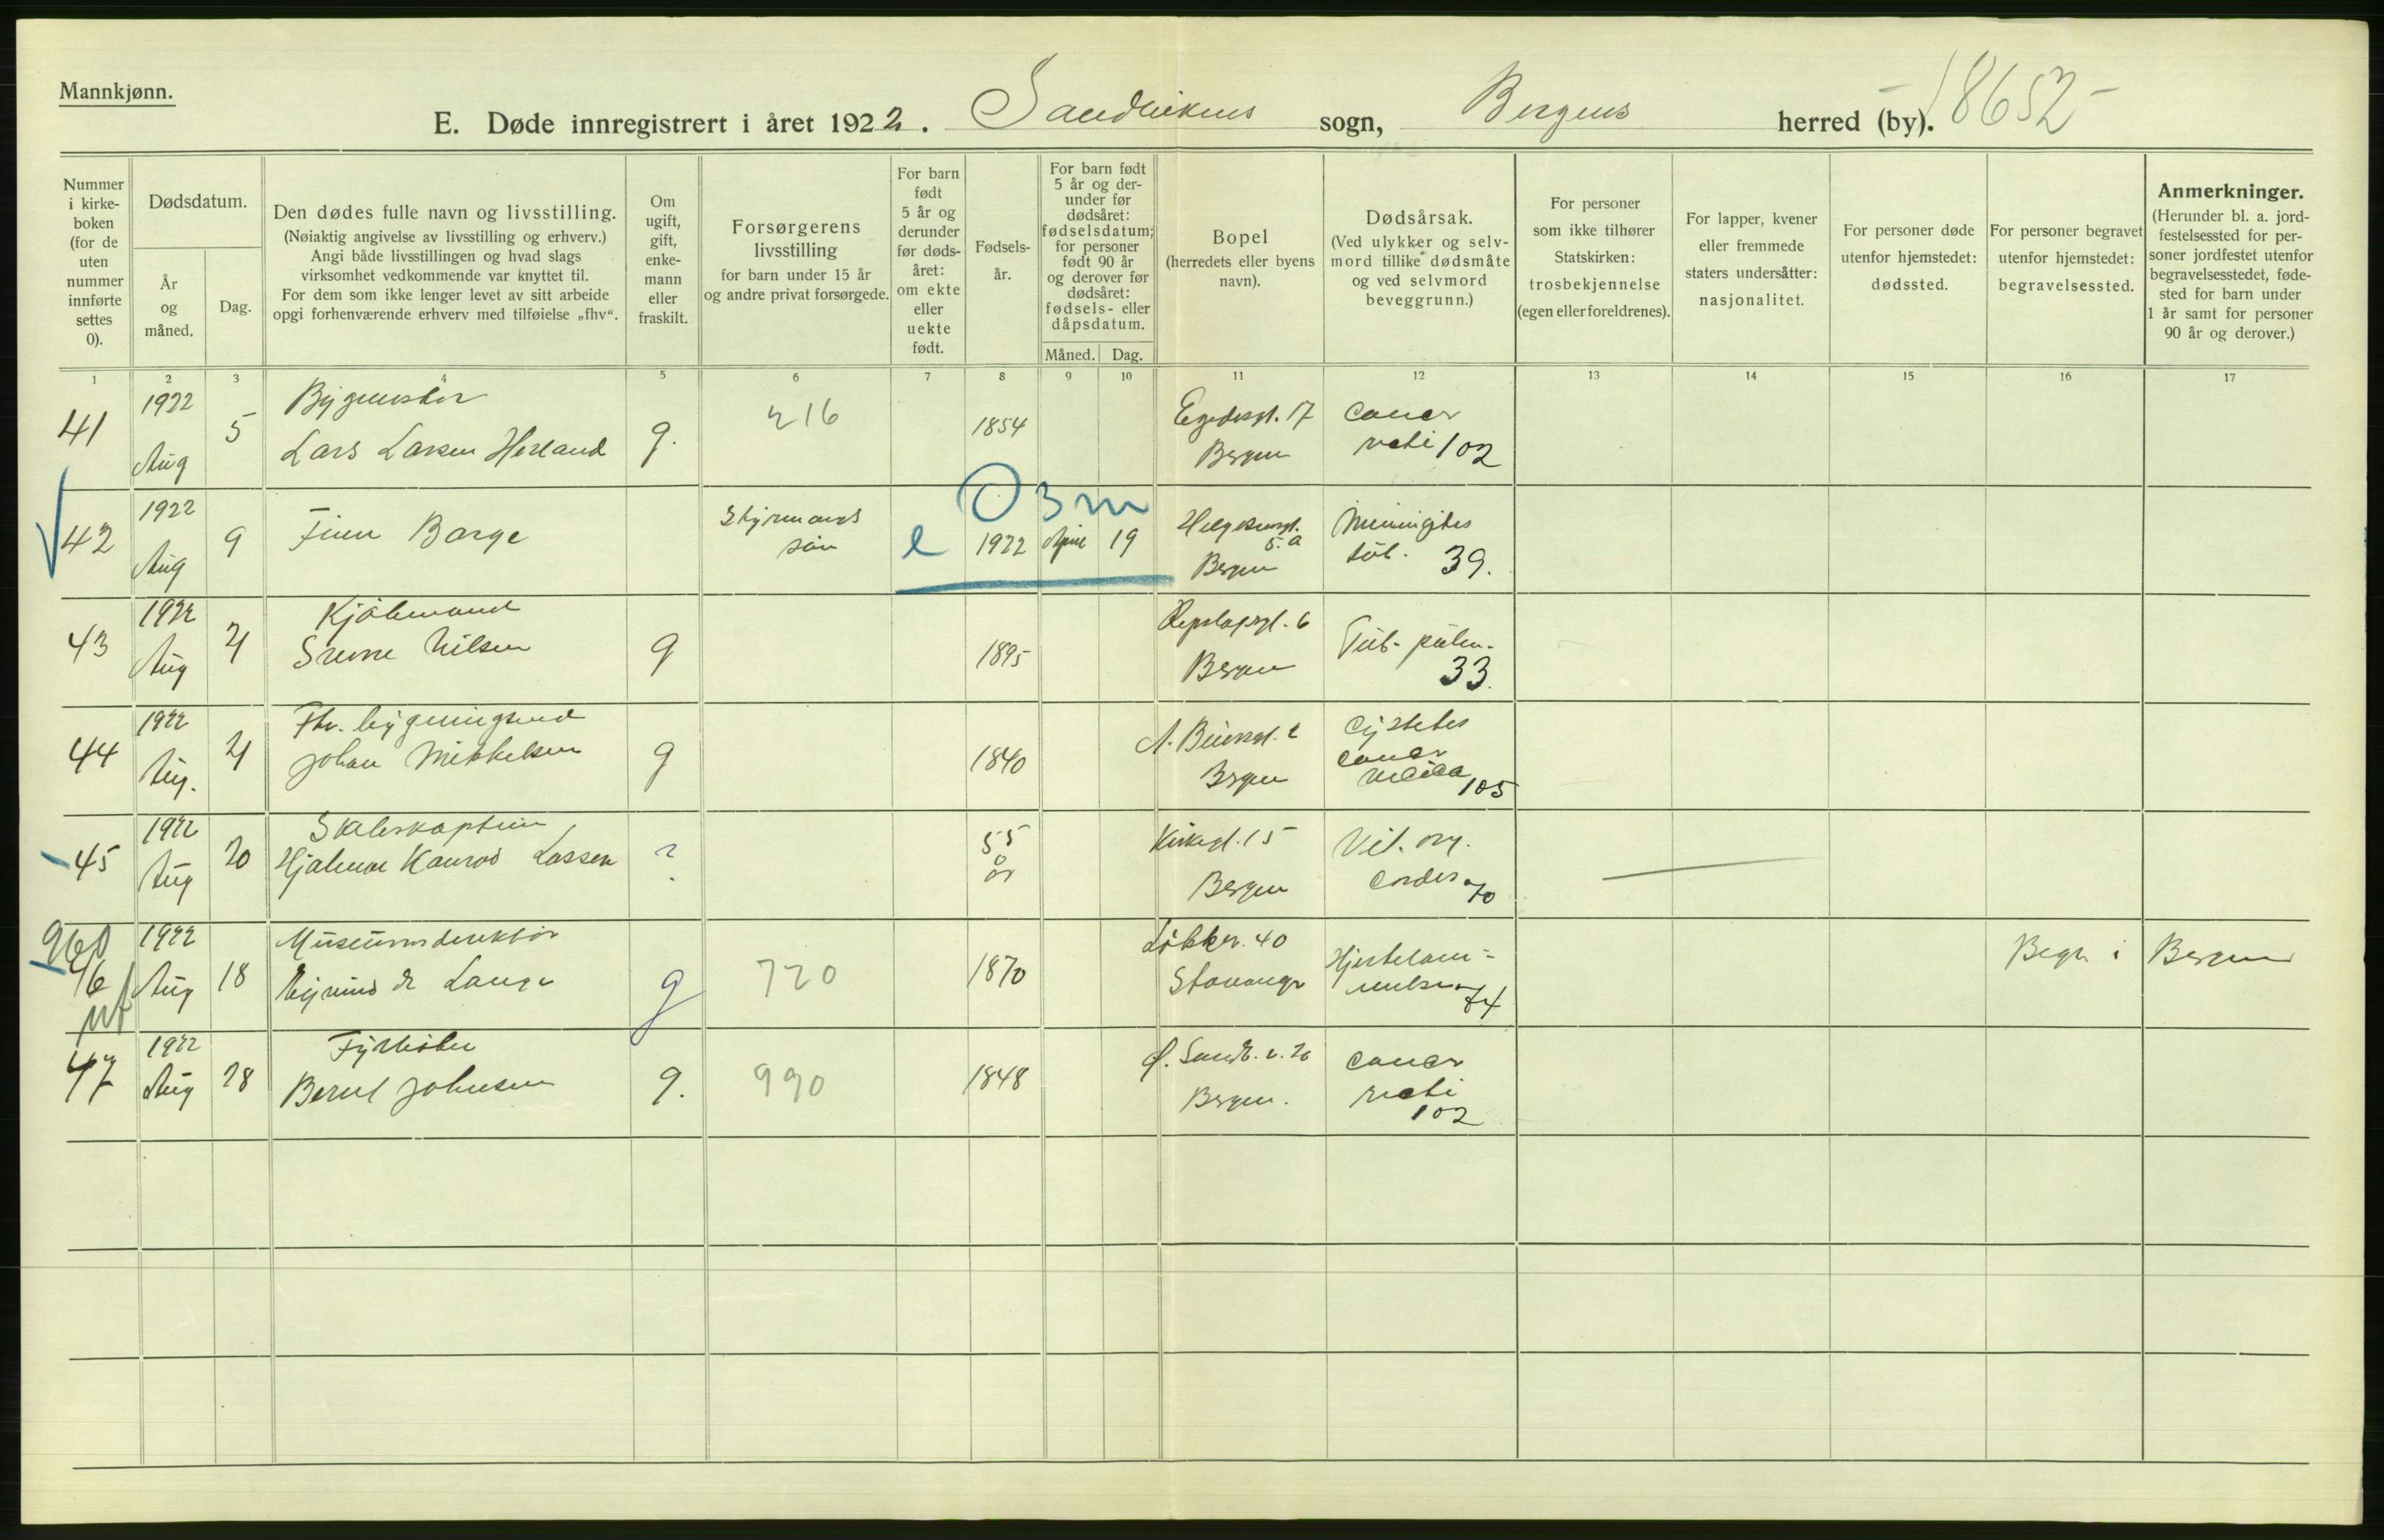 Mannkjønn.
E. Døde innregistrert i året 1922. Sandvikens sogn, Bergens herred (by). 18652
Nummer i kirkeboken (for de uten nummer innførte settes 0).
Dødsdatum.
År og måned.
Dag.
Den dødes fulle navn og livsstilling.
(Nøiaktig angivelse av livsstilling og erhverv.)
Angi både livsstillingen og hvad slags
virksomhet vedkommende var knyttet til.
For dem som ikke lenger levet av sitt arbeide
opgi forhenværende erhverv med tilføielse „fhv“.
Om ugift, gift, enkemann eller fraskilt.
Forsørgerens livsstilling
for barn under 15 år
og andre privat forsørgede.
For barn født 5 år og derunder før dødsåret: om ekte eller uekte født.
Fødselsår.
For barn født 5 år og derunder før dødsåret: fødselsdatum; for personer født 90 år og derover før dødsåret: fødsels- eller dåpsdatum.
Måned. Dag.
Bopel
(herredets eller byens navn).
Dødsårsak.
(Ved ulykker og selvmord tillike dødsmåte og ved selvmord beveggrunn.)
For personer som ikke tilhører Statskirken: trosbekjennelse (egen eller foreldrenes).
For lapper, kvener eller fremmede staters undersåtter: nasjonalitet.
For personer døde utenfor hjemstedet: dødssted.
For personer begravet utenfor hjemstedet: begravelsessted.
Anmerkninger.
(Herunder bl. a. jordfestelsessted for personer jordfestet utenfor begravelsesstedet, fødested for barn under 1 år samt for personer 90 år og derover.)
1 2 3 4 5 6 7 8 9 10 11 12 13 14 15 16 17
41 1922 Aug 5 Lars Larsen Herland g. 216 1854 Egedesgt. 17 Bergen Cancer recti 102
42 1922 Aug 9 Finn Borge Styrmands søn e 0 3 m 1922 April 19 5.a Bergen Meningitis tub. 39.
43 1922 Aug Kjølemand Sverre Nilsen g 1895 Repslagergt. 6 Bergen Tub. pulm. 33.
44 1922 Aug. Fhv. Johan Mikkelsen g 1840 Bergen Cystitis cancer 105
45 1922 Aug 20 Hjalmar Konrad Lassen ? 55 år Kirkegt. 15 Bergen Vit. org. cordis 70
960 46 1922 Aug 18 Museumsdirektør Eyvind de Lange g 720 1870 Løkkev. 40 Stavanger Hjertelammelse 74 Begr. i Bergen
47 1922 Aug 28 Fyrbøter Bernt Johnsen g. 990 1848 Bergen. Cancer recti 102